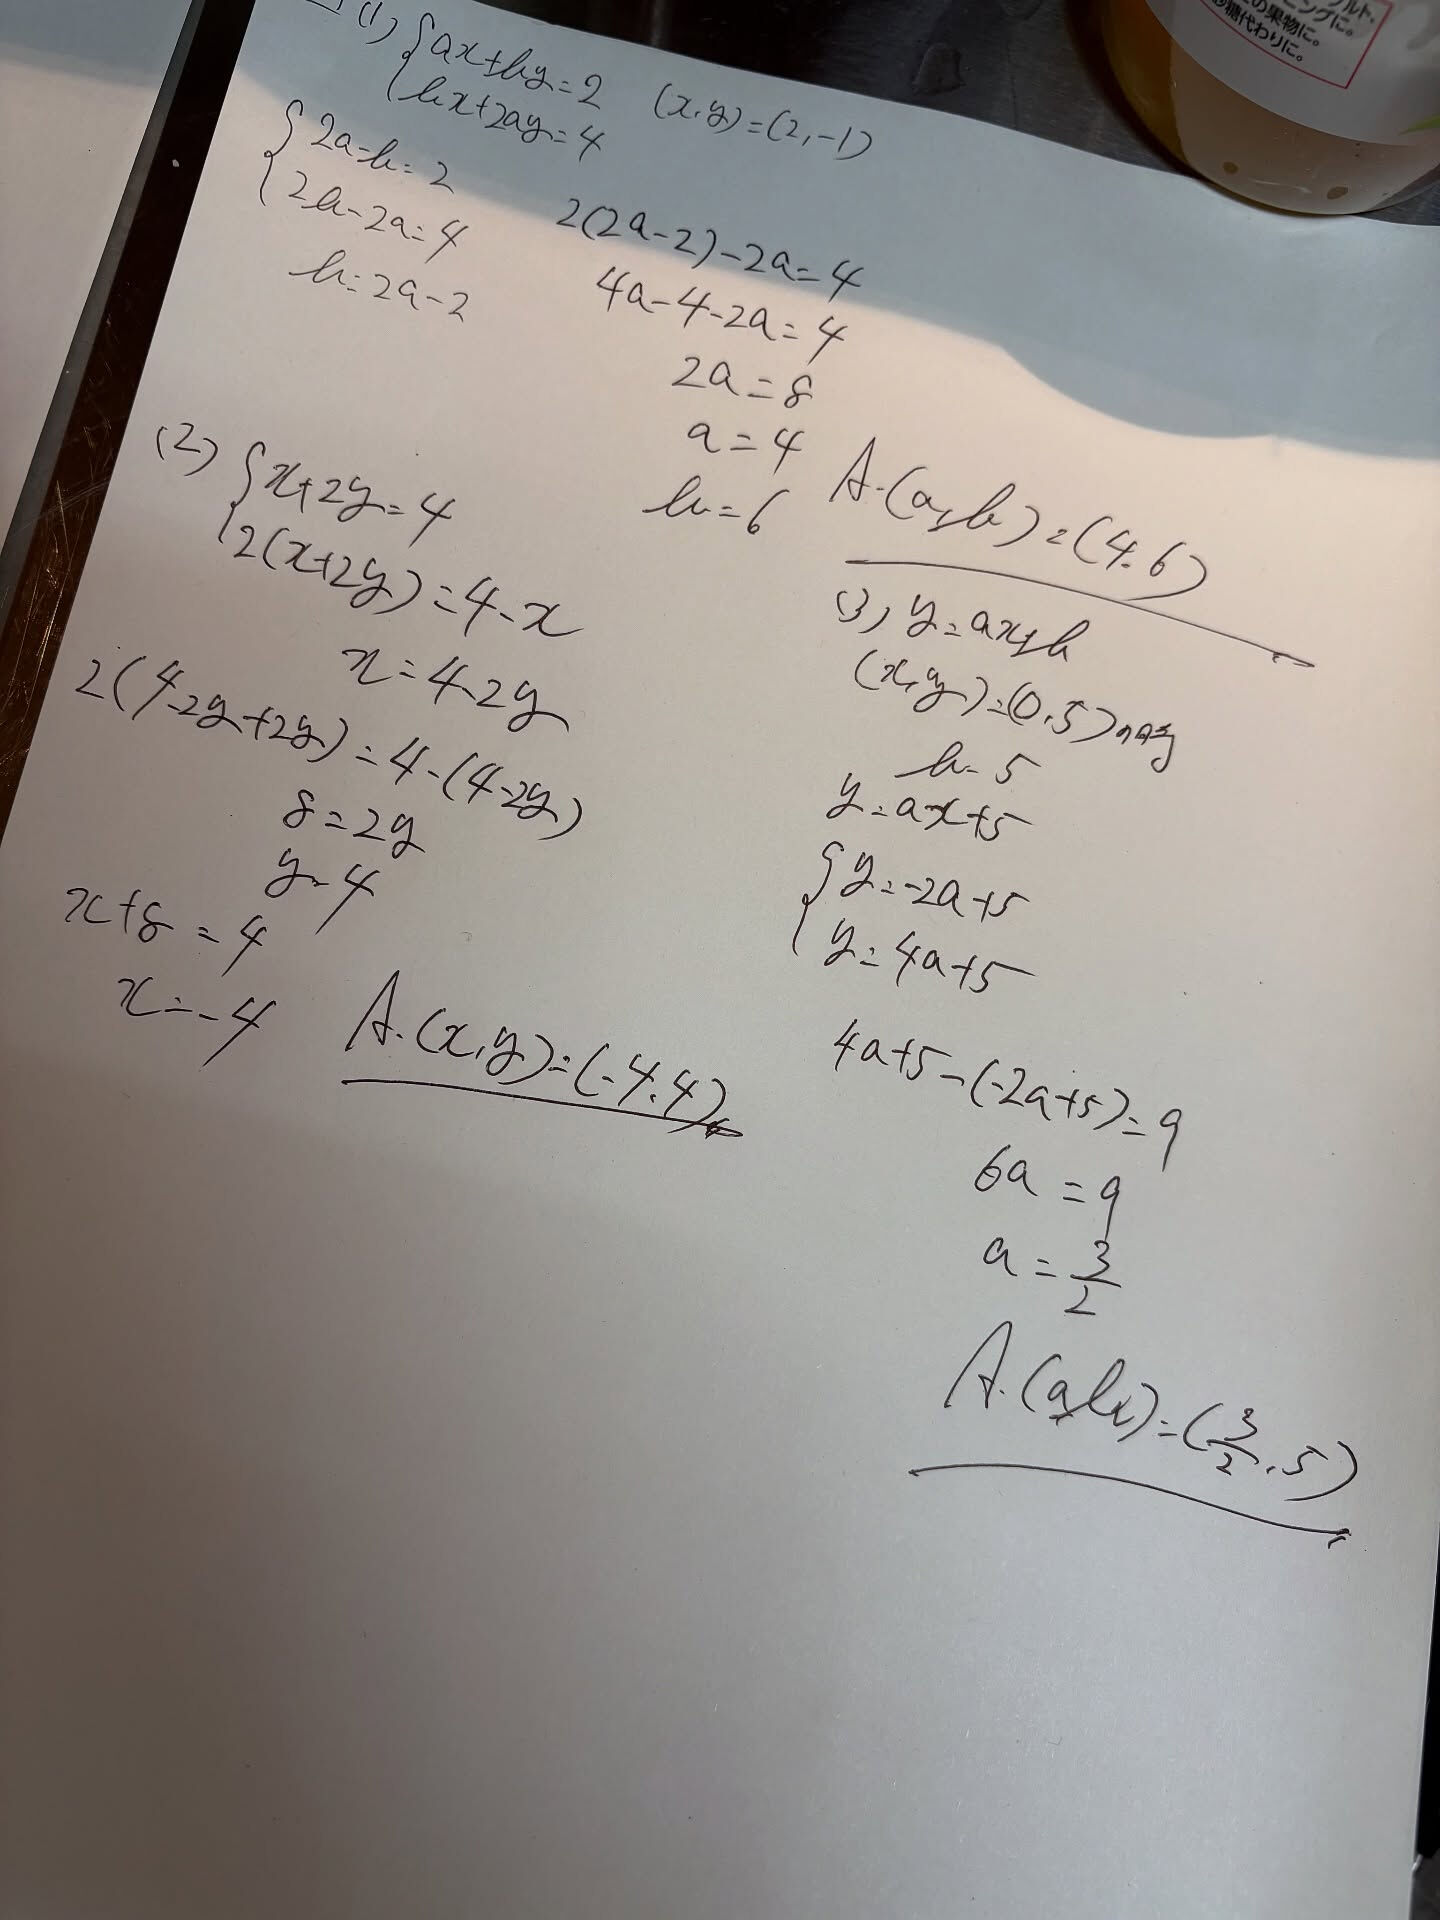 (1) { ax+by=2 (x,y)=(2,-1)
bx+2ay=4
{ 2a-b=2
2b-2a=4
b=2a-2
2(2a-2)-2a=4
4a-4-2a=4
2a=8
a=4
b=6
A.(a,b)=(4.6)
(2) { x+2y=4
2(x+2y)=4-x
x=4-2y
2(4-2y+2y)=4-(4-2y)
8=2y
y=4
x+8=4
x=-4
A.(x,y)=(-4.4)
(3) y=ax+b
(x,y)=(0.5)のとき
b=5
y=ax+5
{ y=-2a+5
y=4a+5
4a+5-(-2a+5)=9
6a=9
a=3/2
A.(a,b)=(3/2.5)
の果物に。
糖代わりに。
ニングに。
ルト、